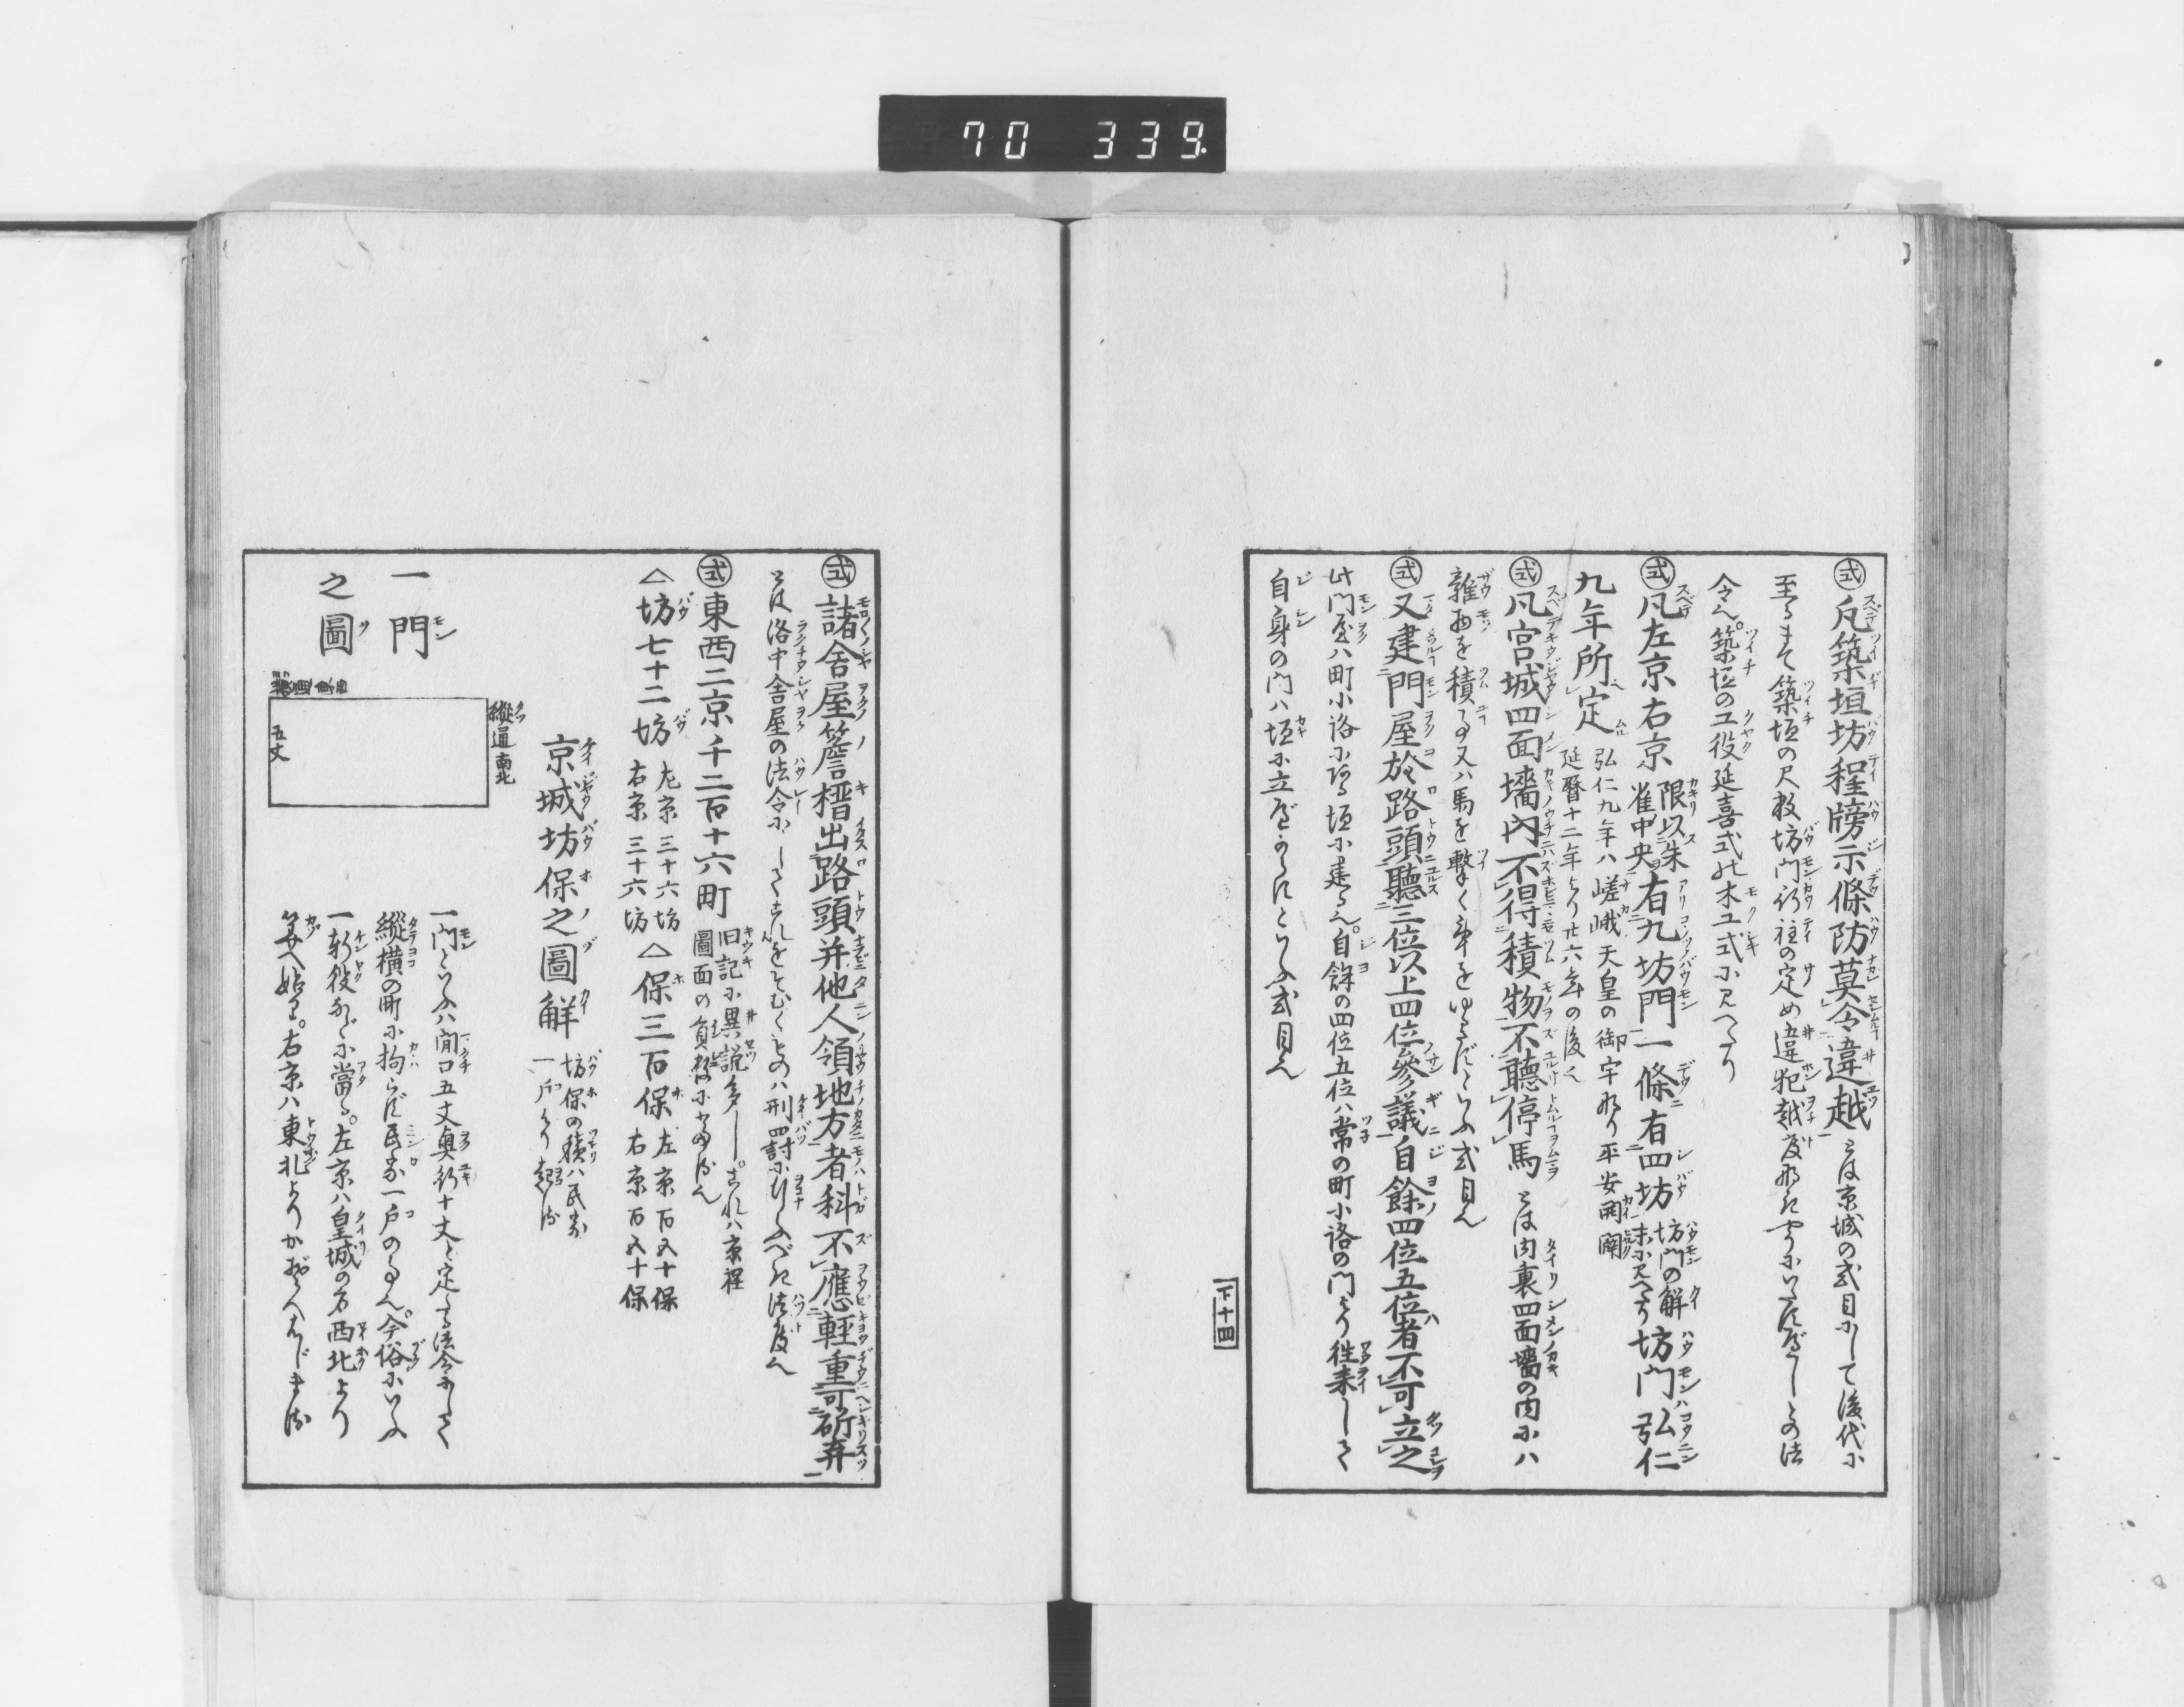 70 339
式 凡築垣坊程牓示條防莫令違越 とは京城の式目にして後代に
至るまて築垣の尺数坊門行柱の定め違犯越度
令へ築垣の工役延喜式木工式に見へたり
式 凡左京右京 限以朱雀中央 有九坊門一條有四坊 坊門の解末に見へたり 坊門弘仁
九年所定 弘仁九年ハ嵯峨天皇の御宇也 平安開闢延暦十二年より廿六年の後也
式 凡宮城四面墻内不得積物不聴停馬 とは内裏四面墻の内にハ
雑物を積る事又ハ馬を繋く事をゆるさずといふ式目也
式 又建門屋於路頭聴三位以上四位参議自餘四位五位者不可立之
此門屋ハ町小路にある垣に建る也 自餘の四位五位ハ常の町小路の門より往来して
自身の門ハ垣に立べからずといふ式目也
下十四
式 諸舎屋簷榗出路頭并他人領地方者科不應輕重可斫棄
とは洛中舎屋の法令にしてこれをそむくものハ刑罸に行ふべき法度也
式 東西二京千二百十六町 旧記に異説多し これハ京裡圖面の員数にかゝはる也
△坊七十二坊 左京三十六坊 右京三十六坊 △保三百保 左京百五十保 右京百五十保
京城坊保之圖解 坊保の積ハ民家一戸より起る
一門
之圖
縦通 南北
五丈
一門といふハ間口五丈奥行十丈と定る法令にして
縦横の町に拘らず民家一戸の事也 今俗にいふ
一軒役などに當る 左京ハ皇城の方西北より
算へ始り 右京ハ東北よりかぞへはじまる